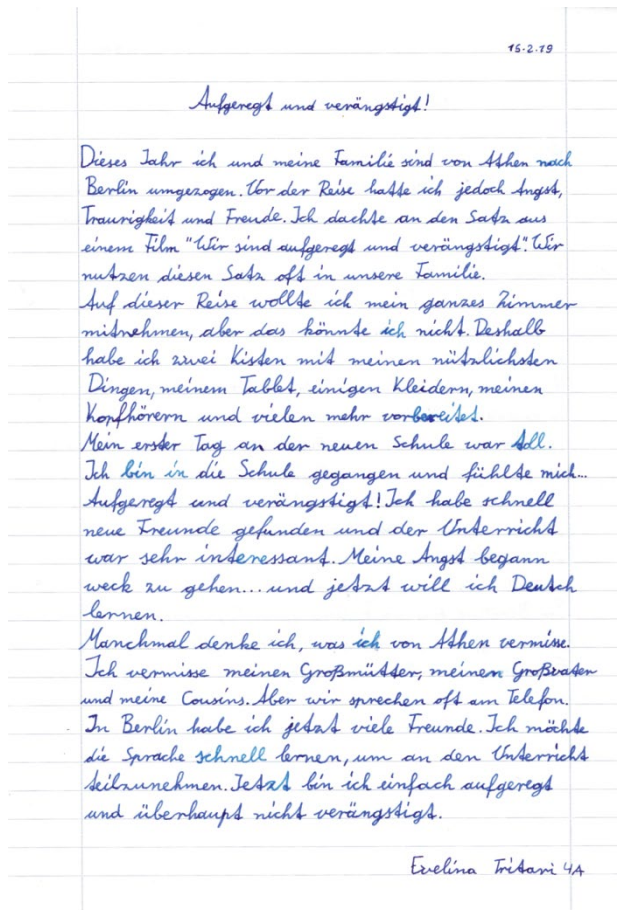 15-2-19
Aufgeregt und verängstigt!
Dieses Jahr ich und meine Familie sind von Athen nach
Berlin umgezogen. Vor der Reise hatte ich jedoch Angst,
Traurigkeit und Freude. Ich dachte an den Satz aus
einem Film "Wir sind aufgeregt und verängstigt". Wir
nutzen diesen Satz oft in unsere Familie.
Auf dieser Reise wollte ich mein ganzes Zimmer
mitnehmen, aber das könnte ich nicht. Deshalb
habe ich zwei Kisten mit meinen nützlichsten
Dingen, meinem Tablet, einigen Kleidern, meinen
Kopfhörern und vielen mehr vorbereitet.
Mein erster Tag an der neuen Schule war toll.
Ich bin in die Schule gegangen und fühlte mich...
Aufgeregt und verängstigt! Ich habe schnell
neue Freunde gefunden und der Unterricht
war sehr interessant. Meine Angst begann
weck zu gehen... und jetzt will ich Deutsch
lernen.
Manchmal denke ich, was ich von Athen vermisse.
Ich vermisse meinen Großmütter, meinen Großvater
und meine Cousins. Aber wir sprechen oft am Telefon.
In Berlin habe ich jetzt viele Freunde. Ich möchte
die Sprache schnell lernen, um an den Unterricht
teilzunehmen. Jetzt bin ich einfach aufgeregt
und überhaupt nicht verängstigt.
Evelina Tritari 4A